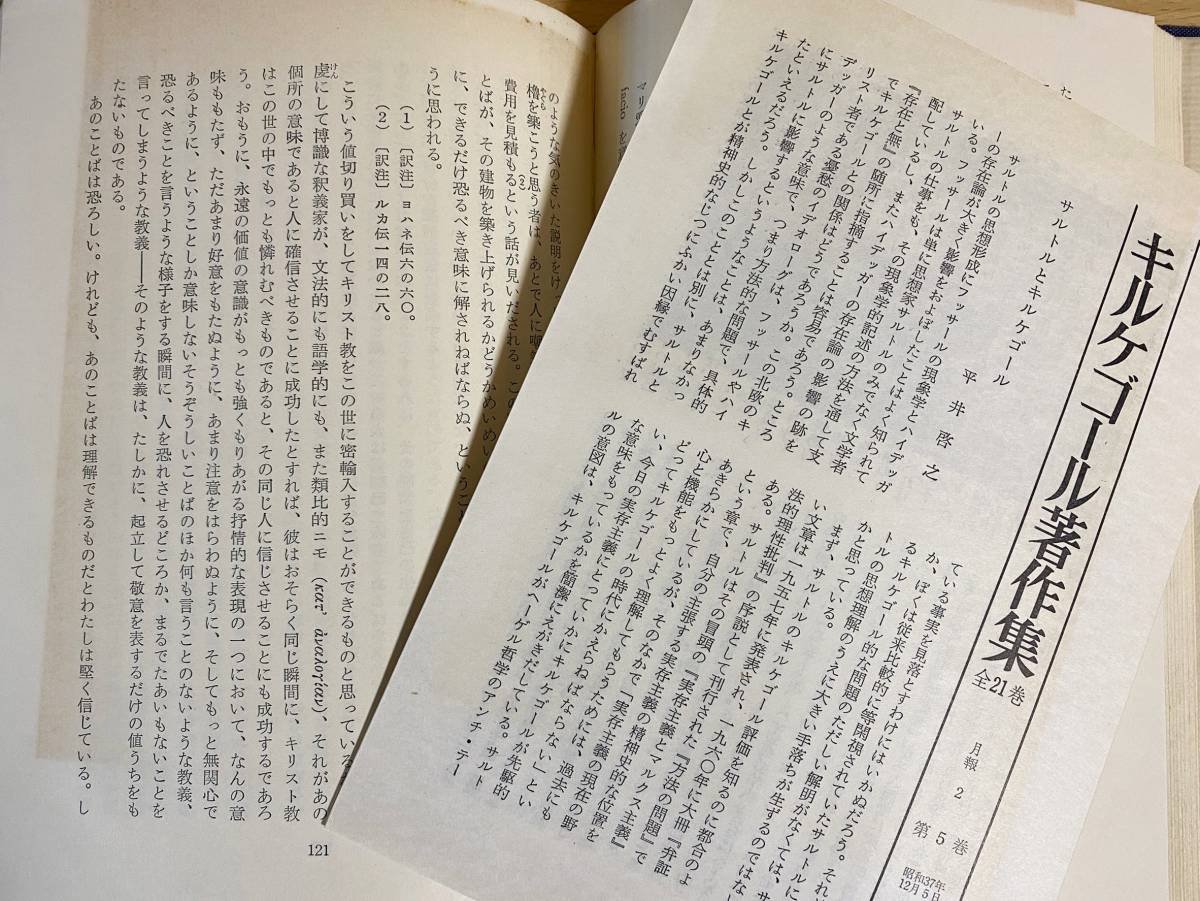 キルケゴール著作集
全21巻
月報 2
第5巻
昭和37年
12月5日
サルトルとキルケゴール
平井啓之
サルトルの思想形成にフッサールの現象学とハイデッガ
ーの存在論が大きく影響をおよぼしたことはよく知られて
いる。フッサールは単に思想家サルトルのみでなく文学者
サルトルの仕事をも、その現象学的記述の方法を通して支
配しているし、またハイデッガーの存在論の影響の跡を
『存在と無』の随所に指摘することは容易であろう。ところ
でキルケゴールとの関係はどうであろうか。この北欧のキ
リスト者である憂愁のイデオローグは、フッサールやハイ
デッガーのような意味で、つまり方法的な問題で、具体的
にサルトルに影響するというようなことは、あまりなかっ
たといえるだろう。しかしこのこととは別に、サルトルと
キルケゴールとが精神史的なじつにふかい因縁でむすばれ
ている事実を見落とすわけにはいかぬだろう。それ
か、ぼくは従来比較的に等閑視されていたサルトルに
るキルケゴール的な問題のただしい解明がなくては、サ
トルの思想理解のうえに大きい手落ちが生ずるのではな
かと思っている。
まず、サルトルのキルケゴール評価を知るのに都合のよ
い文章は一九五七年に発表され、一九六〇年に大冊『弁証
法的理性批判』の序説として刊行された『方法の問題』で
ある。サルトルはその冒頭の『実存主義とマルクス主義』
という章で、自分の主張する実存主義の精神史的な位置を
あきらかにしているが、そのなかで「実存主義の現在の野
心と機能をもっとよく理解してもらうためには、過去にも
どってキルケゴールの時代にかえらねばならない」とい
い、今日の実存主義にとっていかにキルケゴールが先駆的
な意味をもっているかを簡潔にえがきだしている。サルト
ルの意図は、キルケゴールがヘーゲル哲学のアンチ・テー
のような気のきいた説明をけっ
櫓を築こうと思う者は、あとで人に嘲
やぐら
費用を見積もるという話が見いだされる。この
(2)
とばが、その建物を築き上げられるかどうかめいめい
に、できるだけ恐るべき意味に解されねばならぬ、ということ
うに思われる。
(1) 〔訳注〕 ヨハネ伝六の六〇。
(2) 〔訳注〕 ルカ伝一四の二八。
こういう値切り買いをしてキリスト教をこの世に密輸入することができるものと思っている
虔にして博識な釈義家が、文法的にも語学的にも、また類比的ニモ (κατ' ἀναλογίαν)、それがあの
けん
個所の意味であると人に確信させることに成功したとすれば、彼はおそらく同じ瞬間に、キリスト教
はこの世の中でもっとも憐れむべきものであると、その同じ人に信じさせることにも成功するであろ
う。おもうに、永遠の価値の意識がもっとも強くもりあがる抒情的な表現の一つにおいて、なんの意
味ももたず、ただあまり好意をもたぬように、あまり注意をはらわぬように、そしてもっと無関心で
あるように、ということしか意味しないそうぞうしいことばのほか何も言うことのないような教義、
恐るべきことを言うような様子をする瞬間に、人を恐れさせるどころか、まるでたあいもないことを
言ってしまうような教義——そのような教義は、たしかに、起立して敬意を表するだけの値うちをも
たないものである。
あのことばは恐ろしい。けれども、あのことばは理解できるものだとわたしは堅く信じている。し
121